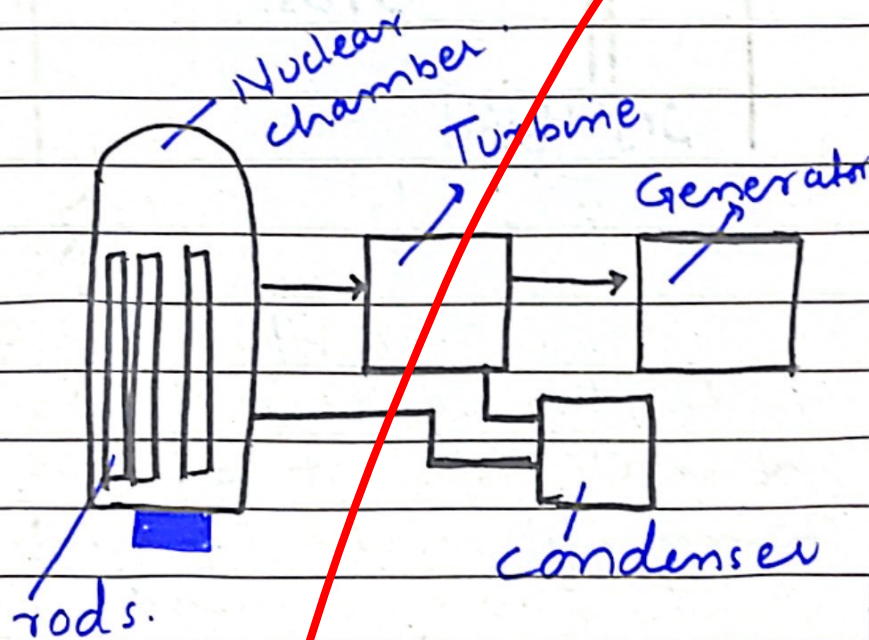 Nuclear
chamber
Turbine
Generator
condenser
rods.